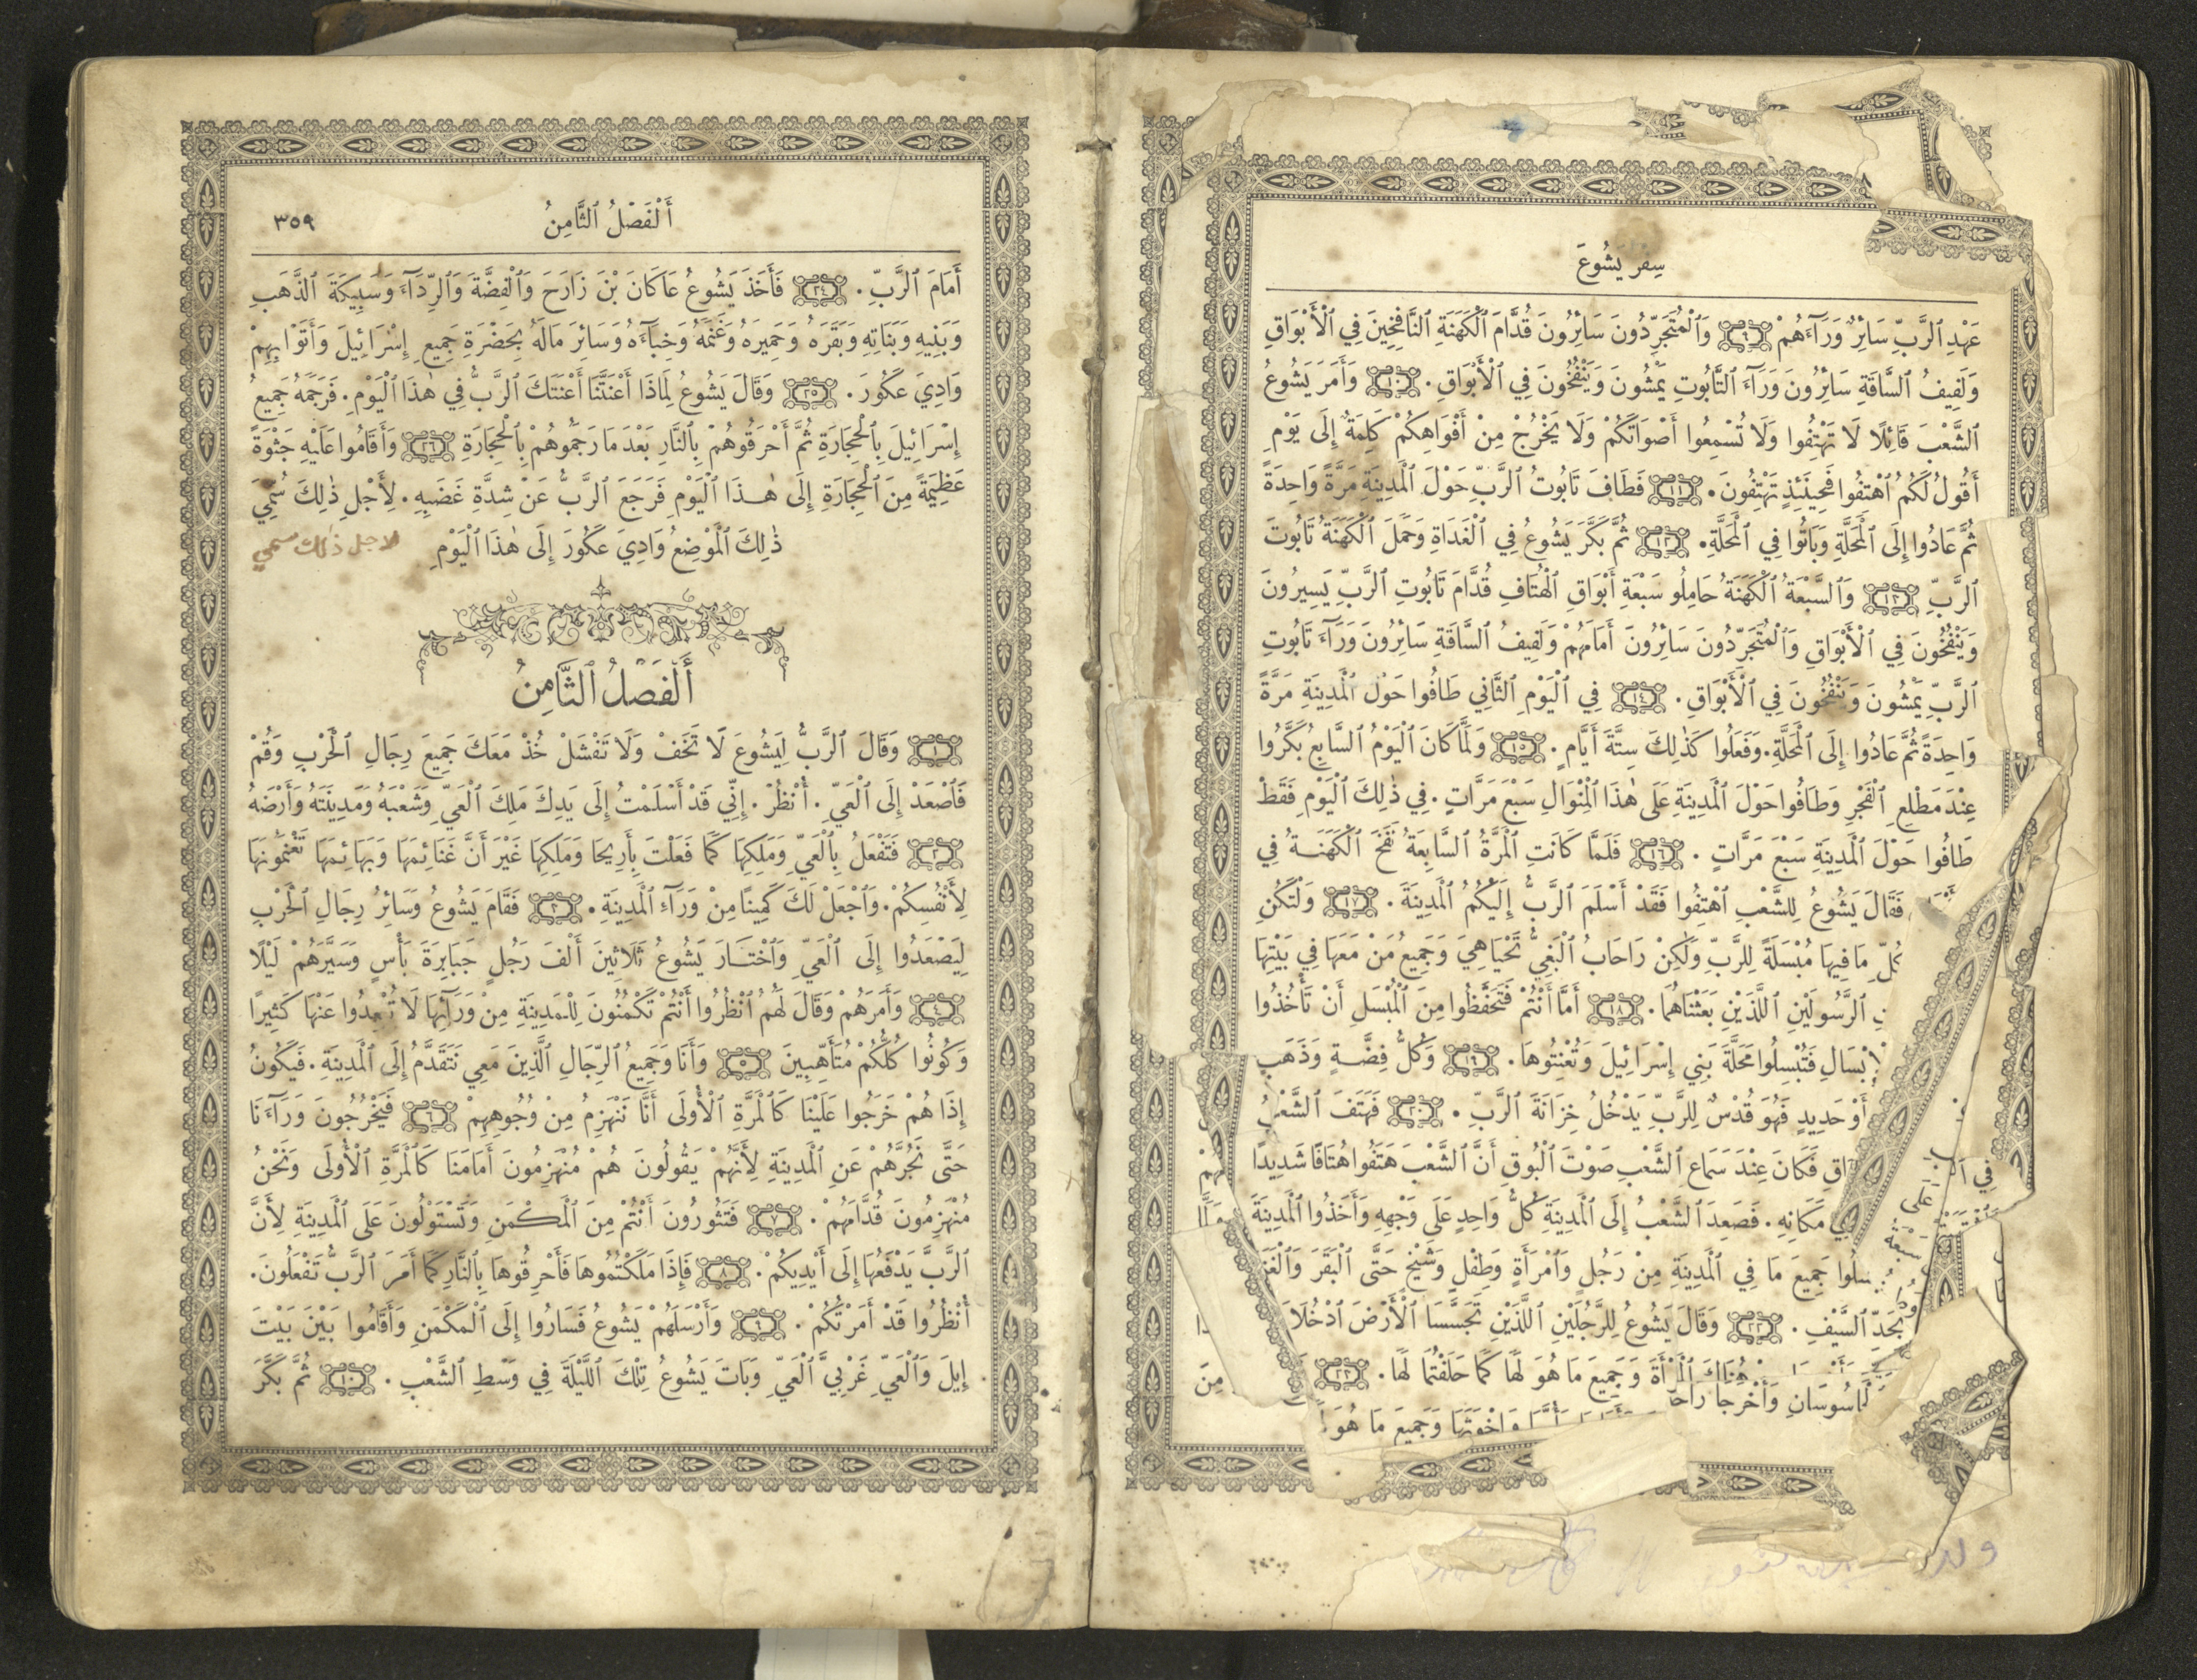 سِفْرُ يَشُوعَ
عَهْدِ ٱلرَّبِّ سَائِرٌ وَرَآءَهُمْ ٩ وَٱلْمُتَجَرِّدُونَ سَائِرُونَ قُدَّامَ ٱلْكَهَنَةِ النَّافِخِينَ فِي ٱلْأَبْوَاقِ
وَلَفِيفُ ٱلسَّاقَةِ سَائِرُونَ وَرَآءَ ٱلتَّابُوتِ يَمْشُونَ وَيَنْفُخُونَ فِي ٱلْأَبْوَاقِ. ١٠ وَأَمَرَ يَشُوعُ
ٱلشَّعْبَ قَائِلًا لَا تَهْتِفُوا وَلَا تُسْمِعُوا أَصْوَاتَكُمْ وَلَا يَخْرُجْ مِنْ أَفْوَاهِكُمْ كَلِمَةٌ إِلَى يَوْمِ
أَقُولُ لَكُمُ ٱهْتِفُوا فَحِينَئِذٍ تَهْتِفُونَ. ١١ فَطَافَ تَابُوتُ ٱلرَّبِّ حَوْلَ ٱلْمَدِينَةِ مَرَّةً وَاحِدَةً
ثُمَّ عَادُوا إِلَى ٱلْمَحَلَّةِ وَبَاتُوا فِي ٱلْمَحَلَّةِ. ١٢ ثُمَّ بَكَّرَ يَشُوعُ فِي ٱلْغَدَاةِ وَحَمَلَ ٱلْكَهَنَةُ تَابُوتَ
ٱلرَّبِّ ١٣ وَٱلسَّبْعَةُ ٱلْكَهَنَةُ حَامِلُو سَبْعَةِ أَبْوَاقِ ٱلْهُتَافِ قُدَّامَ تَابُوتِ ٱلرَّبِّ يَسِيرُونَ
وَيَنْفُخُونَ فِي ٱلْأَبْوَاقِ وَٱلْمُتَجَرِّدُونَ سَائِرُونَ أَمَامَهُمْ وَلَفِيفُ ٱلسَّاقَةِ سَائِرُونَ وَرَآءَ تَابُوتِ
ٱلرَّبِّ يَمْشُونَ وَيَنْفُخُونَ فِي ٱلْأَبْوَاقِ. ١٤ فِي ٱلْيَوْمِ ٱلثَّانِي طَافُوا حَوْلَ ٱلْمَدِينَةِ مَرَّةً
وَاحِدَةً ثُمَّ عَادُوا إِلَى ٱلْمَحَلَّةِ. وَفَعَلُوا كَذٰلِكَ سِتَّةَ أَيَّامٍ. ١٥ وَلَمَّا كَانَ ٱلْيَوْمُ ٱلسَّابِعُ بَكَّرُوا
عِنْدَ مَطْلِعِ ٱلْفَجْرِ وَطَافُوا حَوْلَ ٱلْمَدِينَةِ عَلَى هٰذَا ٱلْمِنْوَالِ سَبْعَ مَرَّاتٍ. فِي ذٰلِكَ ٱلْيَوْمِ فَقَطْ
طَافُوا حَوْلَ ٱلْمَدِينَةِ سَبْعَ مَرَّاتٍ. ١٦ فَلَمَّا كَانَتِ ٱلْمَرَّةُ ٱلسَّابِعَةُ نَفَخَ ٱلْكَهَنَةُ فِي
فَقَالَ يَشُوعُ لِلشَّعْبِ ٱهْتِفُوا فَقَدْ أَسْلَمَ ٱلرَّبُّ إِلَيْكُمُ ٱلْمَدِينَةَ. ١٧ وَلْتَكُنِ
كُلِّ مَا فِيهَا مُبْسَلَةً لِلرَّبِّ وَلٰكِنْ رَاحَابُ ٱلْبَغِيُّ تَحْيَا هِيَ وَجَمِيعُ مَنْ مَعَهَا فِي بَيْتِهَا
ٱلرَّسُولَيْنِ ٱللَّذَيْنِ بَعَثْنَاهُمَا. ١٨ أَمَّا أَنْتُمْ فَتَحَفَّظُوا مِنَ ٱلْمُبْسَلِ أَنْ تَأْخُذُوا
فَتُبْسِلُوا مَحَلَّةَ بَنِي إِسْرَائِيلَ وَتُعْنِتُوهَا. ١٩ وَكُلُّ فِضَّةٍ وَذَهَبٍ
أَوْ حَدِيدٍ فَهُوَ قُدْسٌ لِلرَّبِّ يَدْخُلُ خِزَانَةَ ٱلرَّبِّ. ٢٠ فَهَتَفَ ٱلشَّعْبُ
فَكَانَ عِنْدَ سَمَاعِ ٱلشَّعْبِ صَوْتَ ٱلْبُوقِ أَنَّ ٱلشَّعْبَ هَتَفُوا هُتَافًا شَدِيدًا
مَكَانِهِ. فَصَعِدَ ٱلشَّعْبُ إِلَى ٱلْمَدِينَةِ كُلُّ وَاحِدٍ عَلَى وَجْهِهِ وَأَخَذُوا ٱلْمَدِينَةَ
جَمِيعَ مَا فِي ٱلْمَدِينَةِ مِنْ رَجُلٍ وَٱمْرَأَةٍ وَطِفْلٍ وَشَيْخٍ حَتَّى ٱلْبَقَرَ وَٱلْغَنَ
بِحَدِّ ٱلسَّيْفِ. ٢٢ وَقَالَ يَشُوعُ لِلرَّجُلَيْنِ ٱللَّذَيْنِ تَجَسَّسَا ٱلْأَرْضَ ٱدْخُلَا
هُنَاكَ ٱلْمَرْأَةَ وَجَمِيعَ مَا هُوَ لَهَا كَمَا حَلَفْتُمَا لَهَا. ٢٣
وَأَخْرَجَا
وَإِخْوَتَهَا وَجَمِيعَ مَا هُوَ
٣٥٩ أَلْفَصْلُ ٱلثَّامِنُ
أَمَامَ ٱلرَّبِّ. ٢٤ فَأَخَذَ يَشُوعُ عَاكَانَ بْنَ زَارَحَ وَٱلْفِضَّةَ وَٱلرِّدَآءَ وَسَبِيكَةَ ٱلذَّهَبِ
وَبَنِيهِ وَبَنَاتِهِ وَبَقَرَهُ وَحَمِيرَهُ وَغَنَمَهُ وَخِبَآءَهُ وَسَائِرَ مَالَهُ بِحَضْرَةِ جَمِيعِ إِسْرَائِيلَ وَأَتَوْا بِهِمْ
وَادِيَ عَكُورَ. ٢٥ وَقَالَ يَشُوعُ لِمَاذَا أَعْنَتَّنَا أَعْنَتَكَ ٱلرَّبُّ فِي هٰذَا ٱلْيَوْمِ. فَرَجَمَهُ جَمِيعُ
إِسْرَائِيلَ بِٱلْحِجَارَةِ ثُمَّ أَحْرَقُوهُمْ بِٱلنَّارِ بَعْدَ مَا رَجَمُوهُمْ بِٱلْحِجَارَةِ ٢٦ وَأَقَامُوا عَلَيْهِ جَثْوَةً
عَظِيمَةً مِنَ ٱلْحِجَارَةِ إِلَى هٰذَا ٱلْيَوْمِ فَرَجَعَ ٱلرَّبُّ عَنْ شِدَّةِ غَضَبِهِ. لِأَجْلِ ذٰلِكَ سُمِّيَ
ذٰلِكَ ٱلْمَوْضِعُ وَادِيَ عَكُورَ إِلَى هٰذَا ٱلْيَوْمِ لاجل ذلك سمي
أَلْفَصْلُ ٱلثَّامِنُ
١ وَقَالَ ٱلرَّبُّ لِيَشُوعَ لَا تَخَفْ وَلَا تَفْشَلْ خُذْ مَعَكَ جَمِيعَ رِجَالِ ٱلْحَرْبِ وَقُمْ
فَٱصْعَدْ إِلَى ٱلْعَيِّ. أُنْظُرْ. إِنِّي قَدْ أَسْلَمْتُ إِلَى يَدِكَ مَلِكَ ٱلْعَيِّ وَشَعْبَهُ وَمَدِينَتَهُ وَأَرْضَهُ
٢ فَتَفْعَلُ بِٱلْعَيِّ وَمَلِكِهَا كَمَا فَعَلْتَ بِأَرِيحَا وَمَلِكِهَا غَيْرَ أَنَّ غَنَائِمَهَا وَبَهَائِمَهَا تَغْنَمُونَهَا
لِأَنْفُسِكُمْ. وَٱجْعَلْ لَكَ كَمِينًا مِنْ وَرَآءِ ٱلْمَدِينَةِ. ٣ فَقَامَ يَشُوعُ وَسَائِرُ رِجَالِ ٱلْحَرْبِ
لِيَصْعَدُوا إِلَى ٱلْعَيِّ وَٱخْتَارَ يَشُوعُ ثَلَاثِينَ أَلْفَ رَجُلٍ جَبَابِرَةَ بَأْسٍ وَسَيَّرَهُمْ لَيْلًا
٤ وَأَمَرَهُمْ وَقَالَ لَهُمُ ٱنْظُرُوا أَنْتُمْ تَكْمُنُونَ لِلْمَدِينَةِ مِنْ وَرَآئِهَا لَا تُبْعِدُوا عَنْهَا كَثِيرًا
وَكُونُوا كُلُّكُمْ مُتَأَهِّبِينَ ٥ وَأَنَا وَجَمِيعُ ٱلرِّجَالِ ٱلَّذِينَ مَعِي نَتَقَدَّمُ إِلَى ٱلْمَدِينَةِ. فَيَكُونُ
إِذَا هُمْ خَرَجُوا عَلَيْنَا كَٱلْمَرَّةِ ٱلْأُولَى أَنَّا نَنْهَزِمُ مِنْ وُجُوهِهِمْ ٦ فَيَخْرُجُونَ وَرَآءَنَا
حَتَّى نَجُرَّهُمْ عَنِ ٱلْمَدِينَةِ لِأَنَّهُمْ يَقُولُونَ هُمْ مُنْهَزِمُونَ أَمَامَنَا كَٱلْمَرَّةِ ٱلْأُولَى وَنَحْنُ
مُنْهَزِمُونَ قُدَّامَهُمْ. ٧ فَتَثُورُونَ أَنْتُمْ مِنَ ٱلْمَكْمَنِ وَتَسْتَوْلُونَ عَلَى ٱلْمَدِينَةِ لِأَنَّ
ٱلرَّبَّ يَدْفَعُهَا إِلَى أَيْدِيكُمْ. ٨ فَإِذَا مَلَكْتُمُوهَا فَأَحْرِقُوهَا بِٱلنَّارِ كَمَا أَمَرَ ٱلرَّبُّ تَفْعَلُونَ.
أُنْظُرُوا قَدْ أَمَرْتُكُمْ. ٩ وَأَرْسَلَهُمْ يَشُوعُ فَسَارُوا إِلَى ٱلْمَكْمَنِ وَأَقَامُوا بَيْنَ بَيْتَ
إِيلَ وَٱلْعَيِّ غَرْبِيَّ ٱلْعَيِّ وَبَاتَ يَشُوعُ تِلْكَ ٱللَّيْلَةَ فِي وَسْطِ ٱلشَّعْبِ. ١٠ ثُمَّ بَكَّرَ